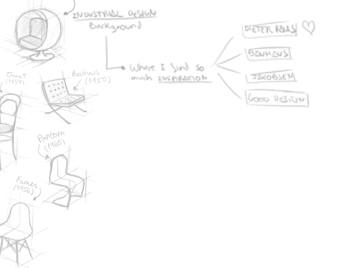 INDUSTRIAL DESIGN
Background
Where I find so
much INSPIRATION
DIETER RAMS
BAUHAUS
JACOBSEN
GOOD DESIGN
Panton
(1960)
Eames
(1950)